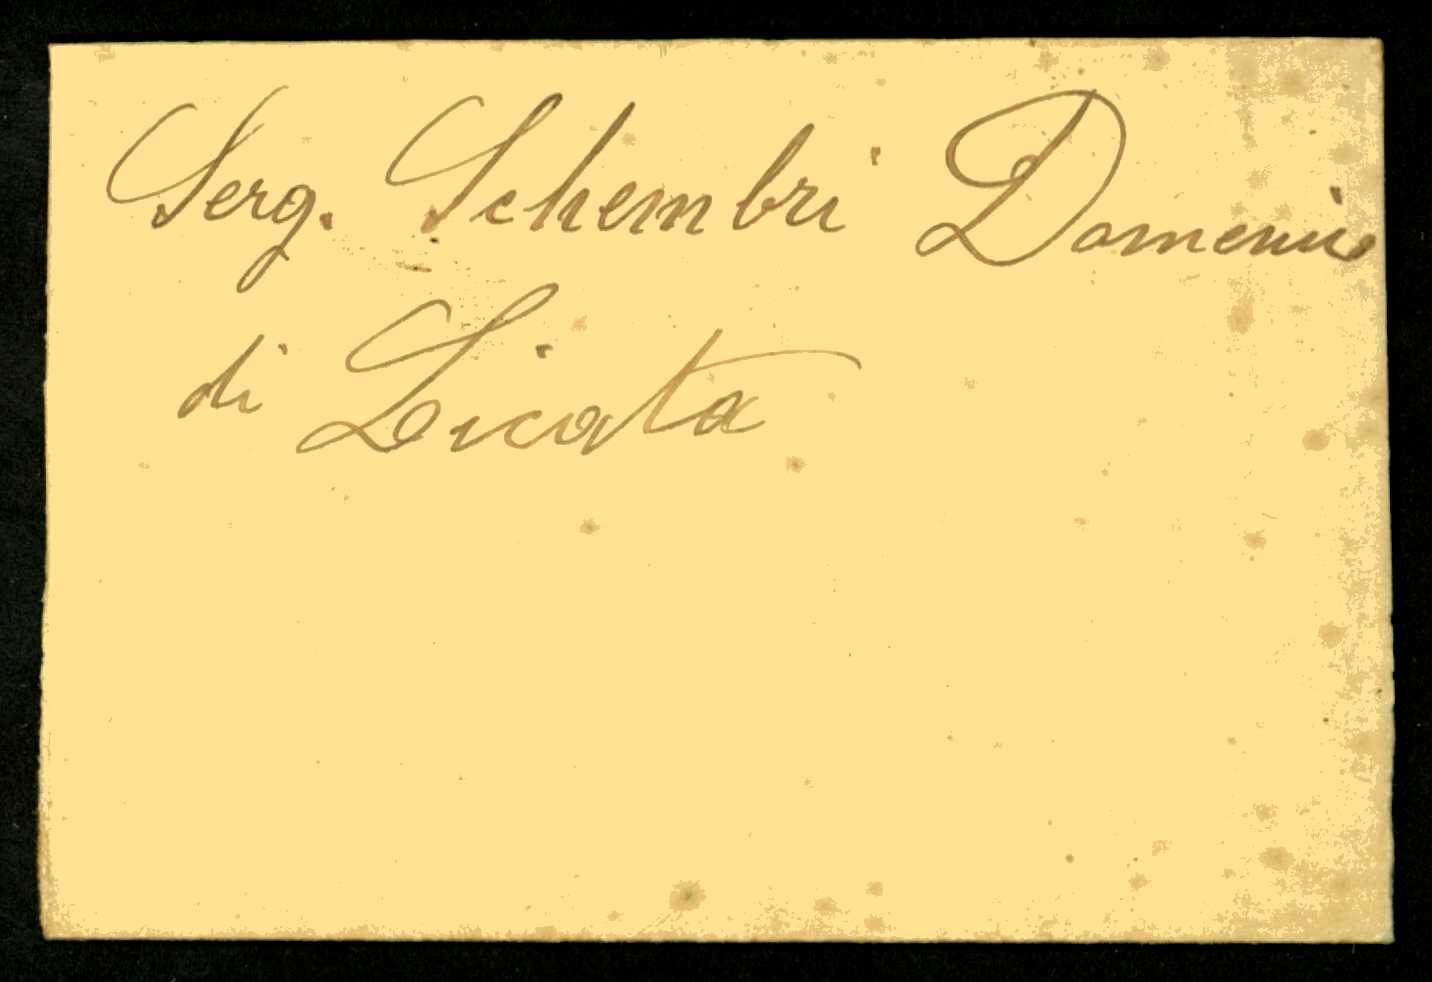 Serg. Schembri Domenico
di Licata